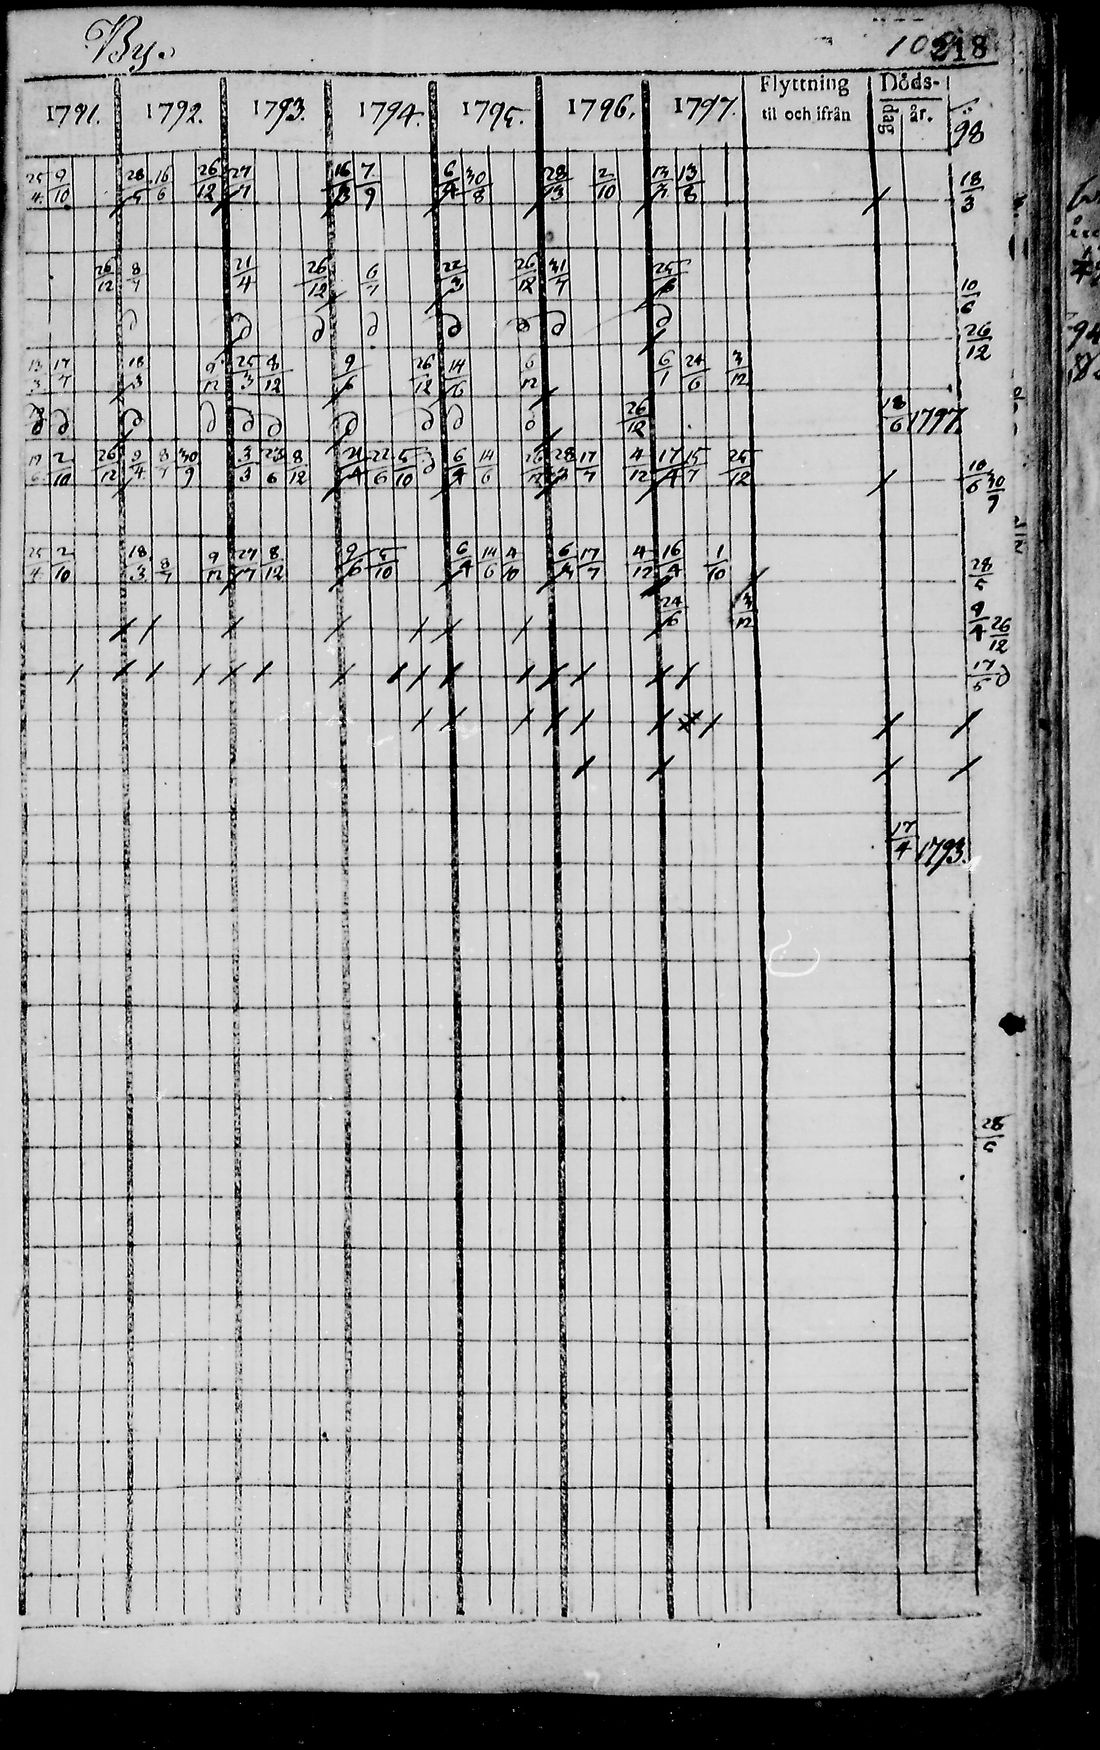 By.
218
1791. 1792. 1793. 1794. 1795. 1796. 1797. Flyttning til och ifrån Döds- dag år. 98
25/4 9/10 28/5 16/6 26/12 27/7 16/3 7/9 6/4 30/8 28/3 2/10 13/8 18/3
26/12 8/7 21/4 26/12 6/7 22/3 26/12 31/7 10/6
∂ ∂ ∂ ∂ ∂ ∂ ∂ ∂ 26/12
13/3 17/7 18/3 9/12 25/3 8/12 9/6 26/12 14/6 6/12 6/1 24/6 3/12
∂ ∂ ∂ ∂ ∂ ∂ ∂ ∂ ∂ ∂ 26/12 18/6 1797.
19/6 2/10 26/12 9/4 8/7 30/9 3/3 23/6 8/12 21/4 22/6 5/10 ∂ 6/4 14/6 26/12 28/3 17/7 4/12 17/4 15/7 25/12 10/6 30/9
25/4 2/10 18/3 8/7 9/12 27/7 8/12 9/6 5/10 6/4 14/6 4/10 6/3 17/7 4/12 16/4 1/10 28/5
24/6 3/12 9/4 26/12
17/5 ∂
17/4 1793.
28/6